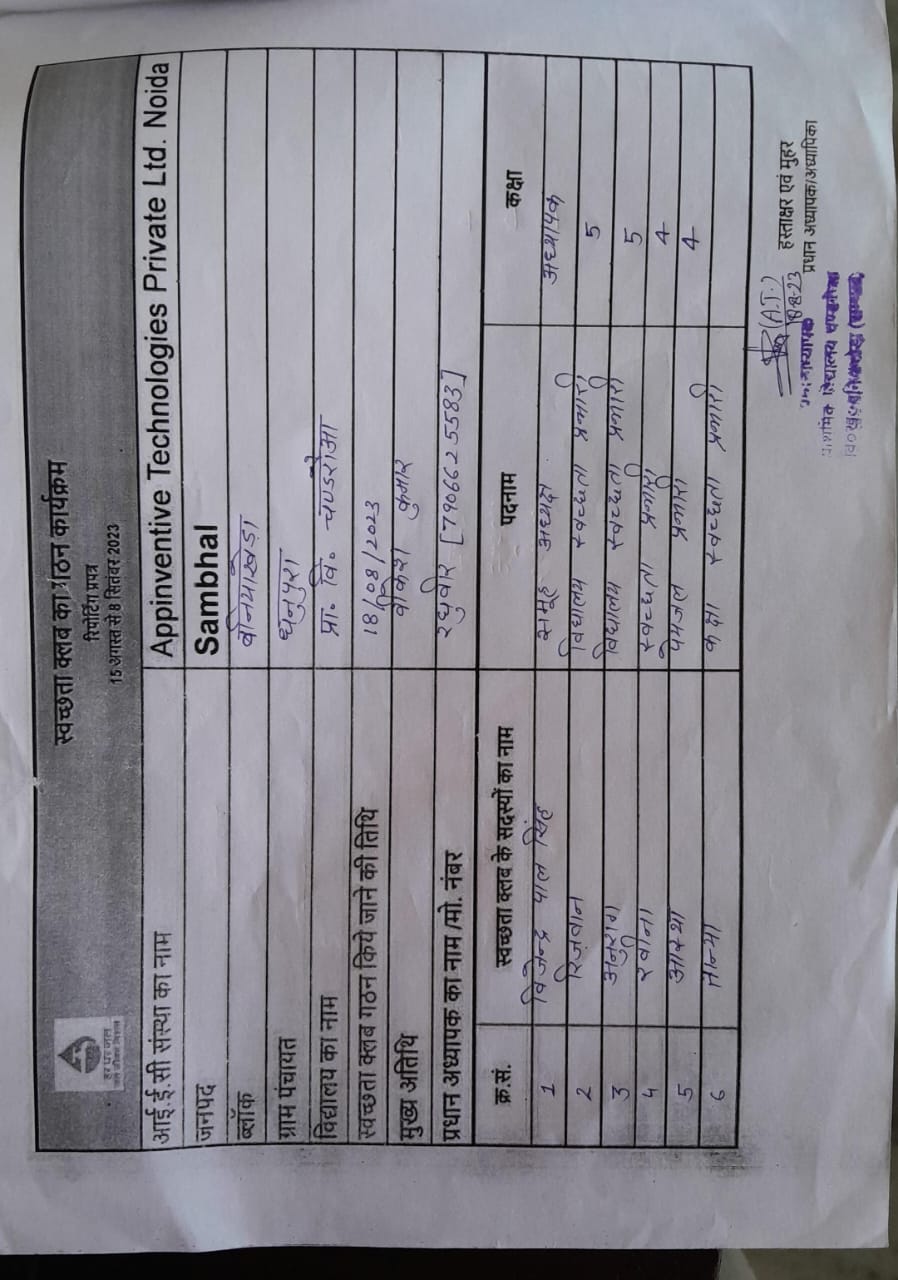 हर घर जल
जल जीवन मिशन
स्वच्छता क्लब का गठन कार्यक्रम
रिपोर्टिंग प्रपत्र
15 अगस्त से 8 सितंबर 2023
आई.ई.सी संस्था का नाम Appinventive Technologies Private Ltd. Noida
जनपद Sambhal
ब्लॉक बनियाखेड़ा
ग्राम पंचायत धनुपुरा
विद्यालय का नाम प्रा० वि०
स्वच्छता क्लब गठन किये जाने की तिथि 18/08/2023
मुख्य अतिथि कुमार
प्रधान अध्यापक का नाम /मो. नंबर रघुवीर [7906625583]
क्र.सं. स्वच्छता क्लब के सदस्यों का नाम पदनाम कक्षा
1 विजेन्द्र पाल सिंह समूह अध्यक्ष अध्यापक
2 रिज़वान विद्यालय स्वच्छता प्रभारी 5
3 अनुराग विद्यालय स्वच्छता प्रभारी 5
4 रवीना स्वच्छता प्रभारी 4
5 आस्था पेयजल प्रभारी 4
6 कक्षा स्वच्छता प्रभारी
(A.T.)
18-8-23
हस्ताक्षर एवं मुहर
प्रधान अध्यापक/अध्यापिका